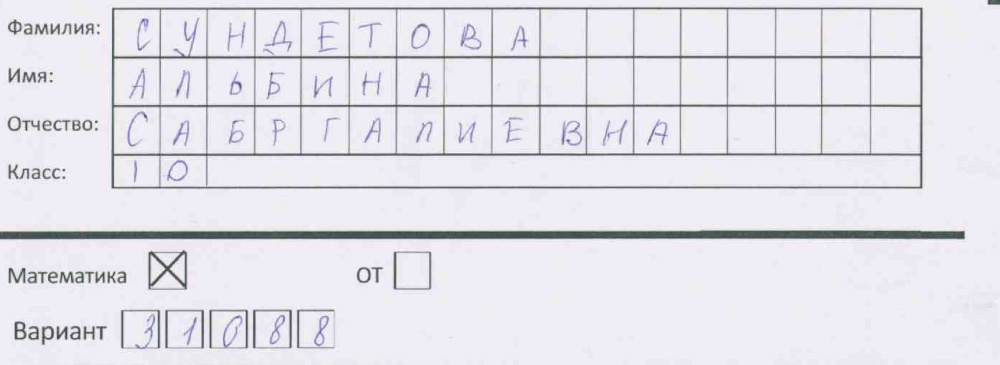 Фамилия: СУНДЕТОВА
Имя: АЛЬБИНА
Отчество: САБРГАЛИЕВНА
Класс: 10
Математика ☒ ОТ ☐
Вариант 31088